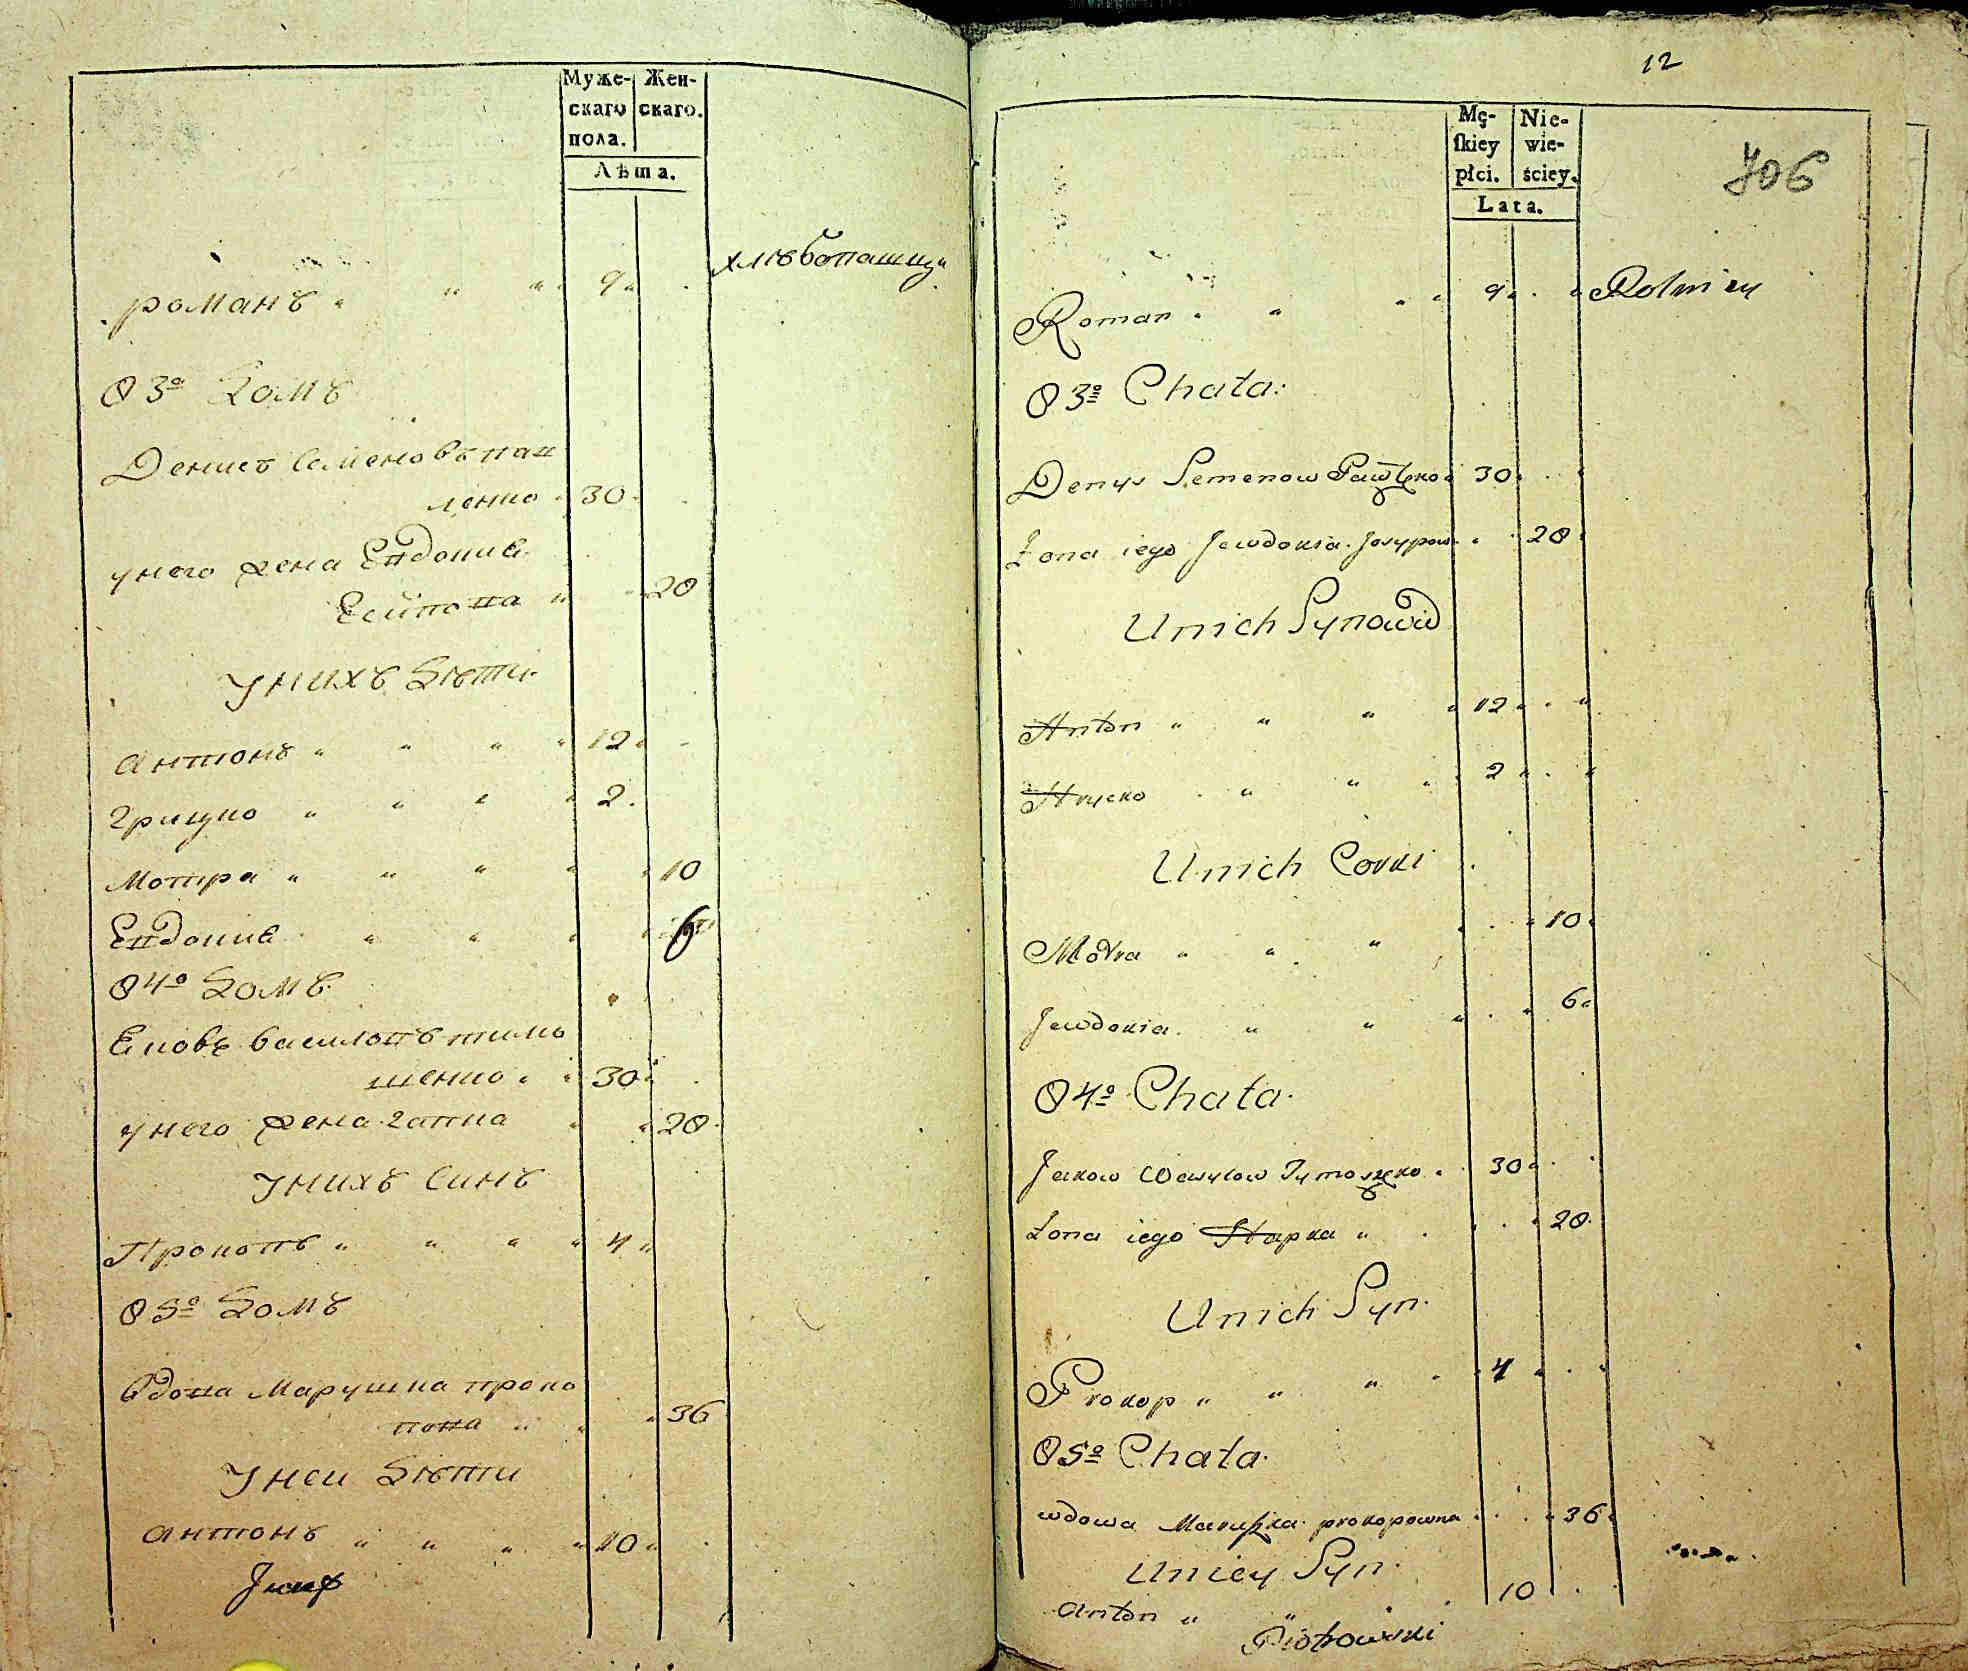 Муже- Жен-
скаго скаго.
пола.
Лѣта.
романъ 9 хлѣбопашцы
О 3º Домъ
Денисъ Семеновъ пав
ленко 30
у него жена Евдокия
Есипова 20
У нихъ Дѣти
антонъ 12
грицко 2
Мотра 10
Евдокия 6
О 4º Домъ
Яковъ василовъ тимо
шенко 30
у него жена гапка 20
У нихъ Синъ
Прокопъ 4
О 5º Домъ
Вдова Марушка проко
пова 36
У неи Дѣти
антонъ 10
12
706
Mę- Nie-
ſkiey wie-
płci. ściey.
Lata.
Roman 9 Rolnicy
O 3º Chata
Denys Semenow Pawlenko 30
Żona iego Jewdokia Josypow 20
Unich Synowie
Anton 12
Hrycko 2
Unich Corki
Motra 10
Jewdokia 6
O 4º Chata
Jakow Wasylow Tymoszenko 30
Żona iego Hapka 20
Unich Syn
Prokop 4
O 5º Chata
wdowa Maruszka prokopowna 36
Uniey Syn
anton 10
Piotrowski